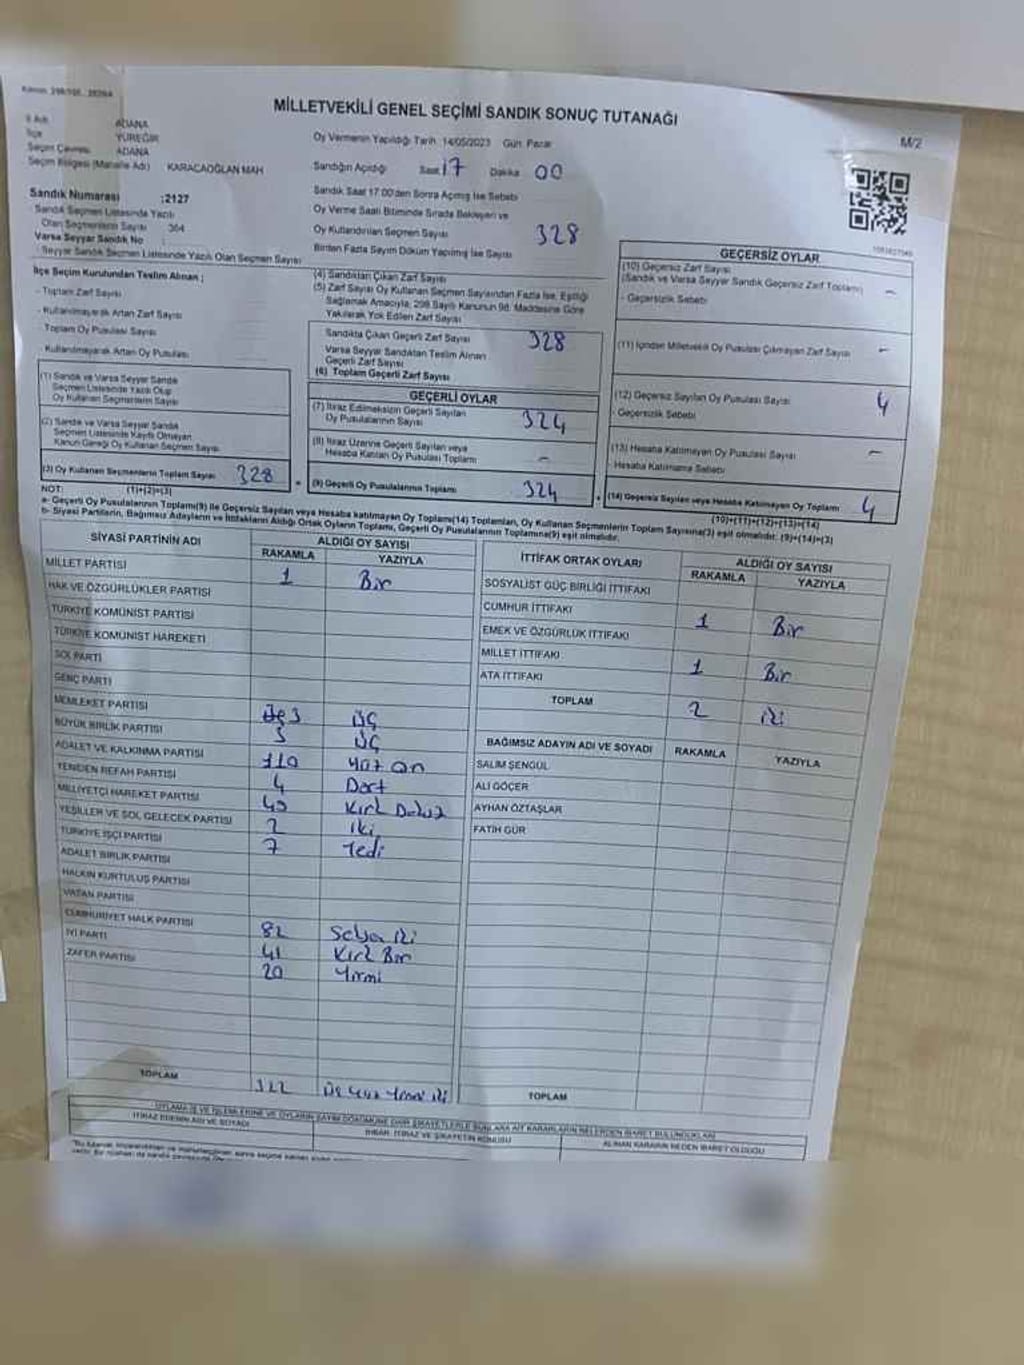 MİLLETVEKİLİ GENEL SEÇİMİ SANDIK SONUÇ TUTANAĞI
M/2
ADANA
İlçe YÜREĞİR
Seçim Çevresi ADANA
Seçim Bölgesi (Mahalle Adı) KARACAOĞLAN MAH
Oy Vermenin Yapıldığı Tarih 14/05/2023 Gün Pazar
Sandığın Açıldığı Saat 17 Dakika 00
Sandık Saat 17.00'den Sonra Açılmış İse Sebebi
Oy Verme Saati Bitiminde Sırada Bekleyen ve
Oy Kullandırılan Seçmen Sayısı 328
Birden Fazla Sayım Döküm Yapılmış İse Sayısı
Sandık Numarası :2127
Sandık Seçmen Listesinde Yazılı
Olan Seçmenlerin Sayısı 364
Varsa Seyyar Sandık No :
Seyyar Sandık Seçmen Listesinde Yazılı Olan Seçmen Sayısı
İlçe Seçim Kurulundan Teslim Alınan ;
- Toplam Zarf Sayısı
- Kullanılmayarak Artan Zarf Sayısı
Toplam Oy Pusulası Sayısı
- Kullanılmayarak Artan Oy Pusulası
(1) Sandık ve Varsa Seyyar Sandık
Seçmen Listesinde Yazılı Olup
Oy Kullanan Seçmenlerin Sayısı
(2) Sandık ve Varsa Seyyar Sandık
Seçmen Listesinde Kayıtlı Olmayan
Kanun Gereği Oy Kullanan Seçmen Sayısı
(3) Oy Kullanan Seçmenlerin Toplam Sayısı 328
(1)+(2)=(3)
(4) Sandıktan Çıkan Zarf Sayısı
(5) Zarf Sayısı Oy Kullanan Seçmen Sayısından Fazla İse, Eşitliği
Sağlamak Amacıyla, 298 Sayılı Kanunun 98. Maddesine Göre
Yakılarak Yok Edilen Zarf Sayısı
Sandıkta Çıkan Geçerli Zarf Sayısı 328
Varsa Seyyar Sandıktan Teslim Alınan
Geçerli Zarf Sayısı
(6) Toplam Geçerli Zarf Sayısı
GEÇERLİ OYLAR
(7) İtiraz Edilmeksizin Geçerli Sayılan
Oy Pusulalarının Sayısı 324
(8) İtiraz Üzerine Geçerli Sayılan veya
Hesaba Katılan Oy Pusulası Toplamı –
(9) Geçerli Oy Pusulalarının Toplamı 324
GEÇERSİZ OYLAR
(10) Geçersiz Zarf Sayısı
(Sandık ve Varsa Seyyar Sandık Geçersiz Zarf Toplamı) –
- Geçersizlik Sebebi
(11) İçinden Milletvekili Oy Pusulası Çıkmayan Zarf Sayısı –
(12) Geçersiz Sayılan Oy Pusulası Sayısı 4
- Geçersizlik Sebebi
(13) Hesaba Katılmayan Oy Pusulası Sayısı –
- Hesaba Katılmama Sebebi
(14) Geçersiz Sayılan veya Hesaba Katılmayan Oy Toplamı 4
(10)+(11)+(12)+(13)=(14)
NOT:
a- Geçerli Oy Pusulalarının Toplamı(9) ile Geçersiz Sayılan veya Hesaba katılmayan Oy Toplamı(14) Toplamları, Oy Kullanan Seçmenlerin Toplam Sayısına(3) eşit olmalıdır. (9)+(14)=(3)
b- Siyasi Partilerin, Bağımsız Adayların ve İttifakların Aldığı Ortak Oyların Toplamı, Geçerli Oy Pusulalarının Toplamına(9) eşit olmalıdır.
SİYASİ PARTİNİN ADI ALDIĞI OY SAYISI
RAKAMLA YAZIYLA
MİLLET PARTİSİ 1 Bir
HAK VE ÖZGÜRLÜKLER PARTİSİ
TÜRKİYE KOMÜNİST PARTİSİ
TÜRKİYE KOMÜNİST HAREKETİ
SOL PARTİ
GENÇ PARTİ
MEMLEKET PARTİSİ 3 üç
BÜYÜK BİRLİK PARTİSİ 3 üç
ADALET VE KALKINMA PARTİSİ 110 yüz on
YENİDEN REFAH PARTİSİ 4 Dört
MİLLİYETÇİ HAREKET PARTİSİ 49 Kırk Dokuz
YEŞİLLER VE SOL GELECEK PARTİSİ 2 iki
TÜRKİYE İŞÇİ PARTİSİ 7 Yedi
ADALET BİRLİK PARTİSİ
HALKIN KURTULUŞ PARTİSİ
VATAN PARTİSİ
CUMHURİYET HALK PARTİSİ 82 Seksen iki
İYİ PARTİ 41 Kırk Bir
ZAFER PARTİSİ 20 Yirmi
TOPLAM 322 üç yüz yirmi iki
İTTİFAK ORTAK OYLARI ALDIĞI OY SAYISI
RAKAMLA YAZIYLA
SOSYALİST GÜÇ BİRLİĞİ İTTİFAKI
CUMHUR İTTİFAKI 1 Bir
EMEK VE ÖZGÜRLÜK İTTİFAKI
MİLLET İTTİFAKI 1 Bir
ATA İTTİFAKI
TOPLAM 2 iki
BAĞIMSIZ ADAYIN ADI VE SOYADI RAKAMLA YAZIYLA
SALİM ŞENGÜL
ALİ GÖÇER
AYHAN ÖZTAŞLAR
FATİH GÜR
TOPLAM
OYLAMA İŞ VE İŞLEMLERİNE VE OYLARIN SAYIM DÖKÜMÜNE DAİR ŞİKAYETLERLE BUNLARA AİT KARARLARIN NELERDEN İBARET BULUNDUKLARI
İTİRAZ EDENİN ADI VE SOYADI
İHBAR, İTİRAZ VE ŞİKAYETİN KONUSU
ALINAN KARARIN NEDEN İBARET OLDUĞU